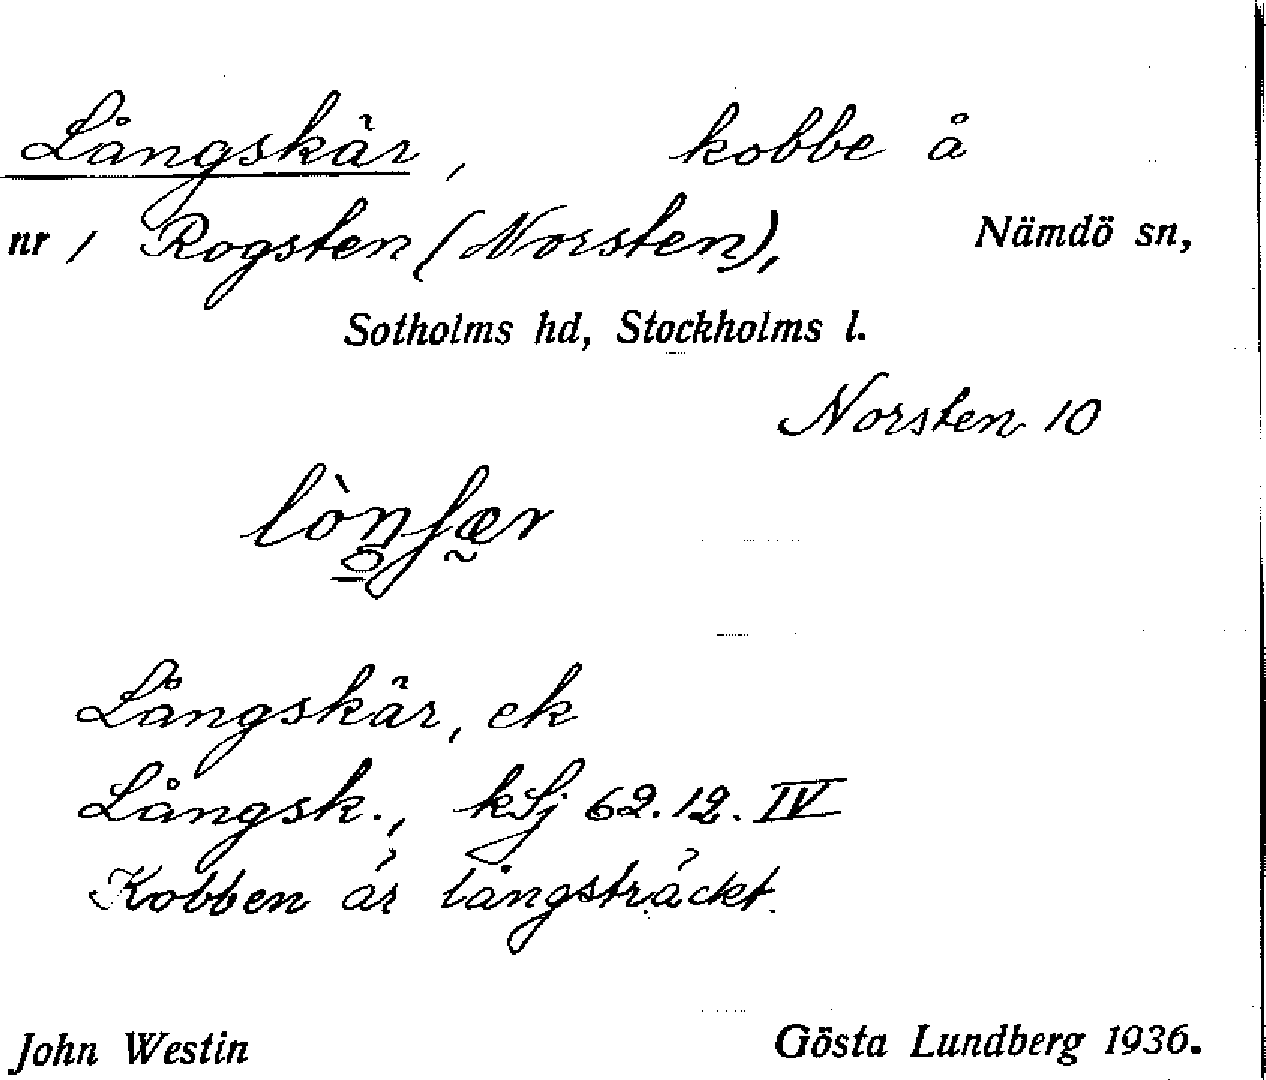 Långskär, kobbe å
nr 1 Rogsten (Norsten), Nämdö sn,
Sotholms hd, Stockholms l.
Norsten 10
Långskär, ek
Långsk., kSj 62.12.IV
Kobben är långsträckt.
John Westin Gösta Lundberg 1936.